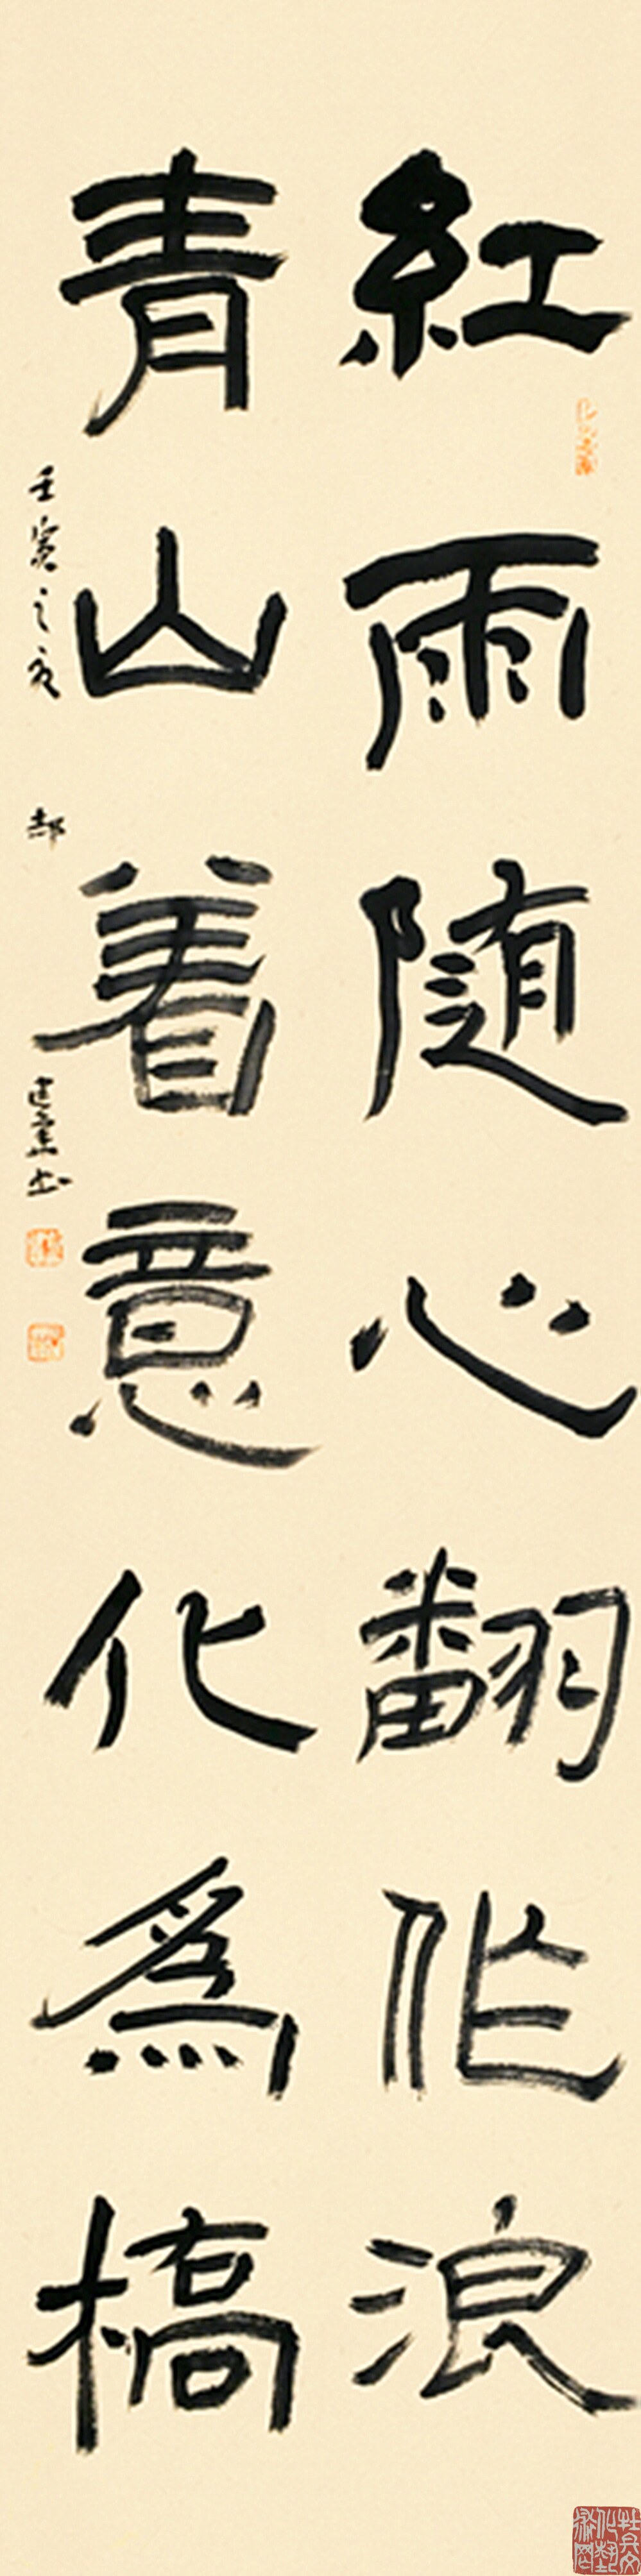 紅雨随心翻作浪
青山着意化為橋
壬寅之夏 郝建業书